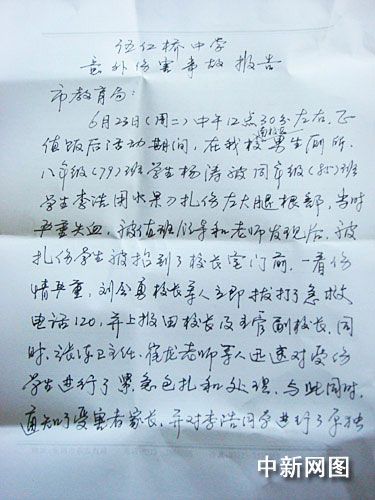 伍仁桥中学
意外伤害事故报告
市教育局:
6月23日(周二)中午12点30分左右,正
值饭后活动期间,在我校南校区男生厕所,
八年级(79)班学生杨涛被同年级(85)班
学生李浩用水果刀扎伤左大腿根部,当时
严重失血,被值班领导和老师发现后,被
扎伤学生被抬到了校长室门前,一看伤
情严重,刘会勇校长等人立即拔打了急救
电话120,并上报田校长及主管副校长,同
时,张海卫主任、崔龙老师等人迅速对受伤
学生进行了紧急包扎和处理,与此同时,
通知了受害者家长,并对李浩同学进行了单独
中新网图